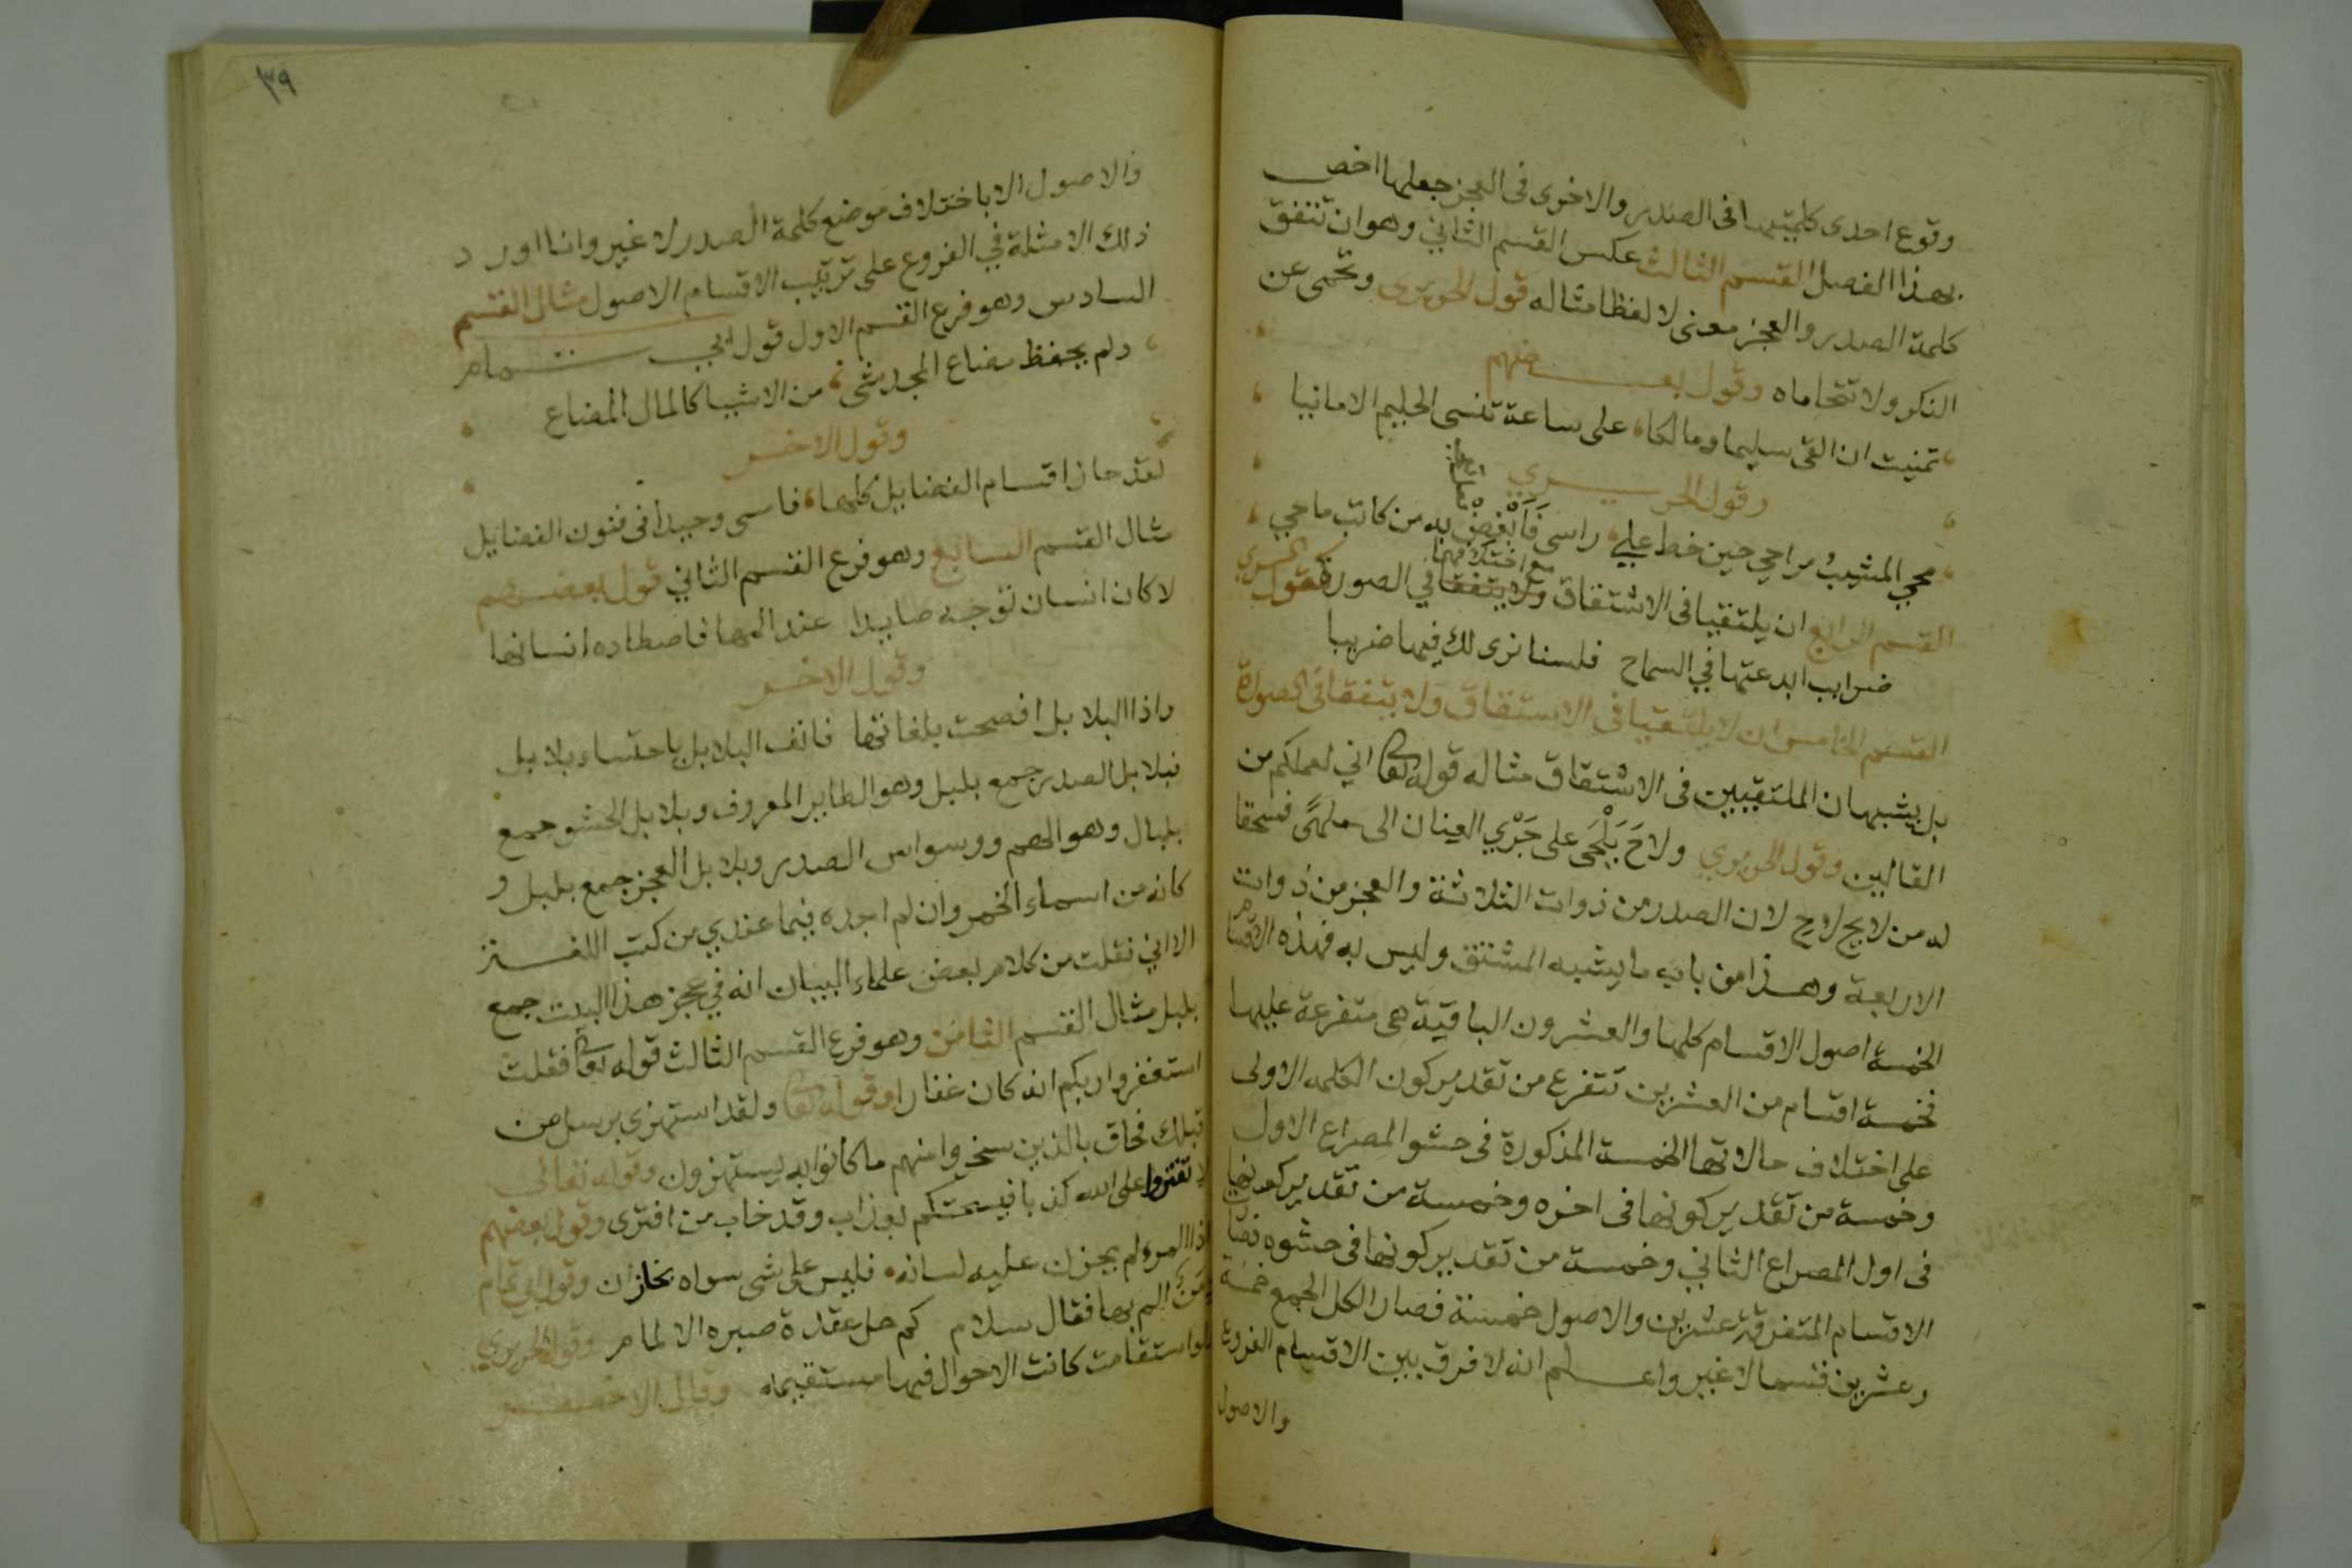 وقوع احدى كلمتيها فى الصدر والاخرى فى العجز جعلها اخص
بهذا الفصل القسم الثالث عكس القسم الثاني وهو ان تتفق
كلمة الصدر والعجز معنى لا لفظا مثاله قول الحريرى وتحمى عن
النكر ولا تتحاماه وقول بعضهم
تمنيت ان القى سليما ومالكا، على ساعة تنسى الحليم الامانيا
وقول الحريري
محي المشيب مراحي حين خط على، راسى فابغض به من كاتب ماحي
القسم الرابع ان يلتقيا فى الاشتقاق ولا يتفقا في الصورة كقول
مع اختلافهما
ضرايب ابدعتها في السماح فلسنا نرى لك فيها ضريبا
القسم الخامس ان لا يلتقيا فى الاشتقاق ولا يتفقا فى الصورة
بل يشبهان الملتقيين فى الاشتقاق مثاله قوله تعا اني لعملكم من
القالين وقول الحريري ولاح يلحى على جري العنان الى ملهى فسحقا
له من لايح لاح لان الصدر من ذوات الثلاثة والعجز من ذوات
الاربعة وهذا من باب ما يشبه المشتق وليس به فهذه الاقسام
الخمسة اصول الاقسام كلها والعشرون الباقية هى متفرعة عليها
فخمسة اقسام من العشرين تتفرع من تقدير كون الكلمه الاولى
على اختلاف حالاتها الخمسة المذكورة فى حشو المصراع الاول
وخمسة من تقدير كونها فى اخره وخمسة من تقدير كونها
فى اول المصراع الثاني وخمسة من تقدير كونها فى حشوه فصارت
الاقسام المتفرقة عشرين والاصول خمسة فصار الكل الجمع خمسة
وعشرين قسما لا غير واعلم انه لا فرق بين الاقسام الفروع
والاصول
٣٩
والاصول الا باختلاف موضع كلمة الصدر لا غير وانا اورد
ذلك الامثلة في الفروع على ترتيب الاقسام الاصول مثال القسم
السادس وهو فرع القسم الاول قول ابي تمام
ولم يحفظ مضاع المجد شىء، من الاشيا كالمال المضاع
وقول الاخر
لقد حاز اقسام الفضايل كلها، فامسى وحيدا فى فنون الفضايل
مثال القسم السابع وهو فرع القسم الثاني قول بعضهم
لا كان انسان توجه صايدا عند المها فاصطاده انسانها
وقول الاخر
واذا البلابل افصحت بلغاتها فانف البلابل باحتساء بلابل
فبلابل الصدر جمع بلبل وهو الطاير المعروف وبلابل الحشو جمع
بلبال وهو الهم ووسواس الصدر وبلابل العجز جمع بلبل و
كانه من اسماء الخمر وان لم اجده فيما عندي من كتب اللغة
الا اني نقلت من كلام بعض علماء البيان انه في عجز هذا البيت جمع
بلبل مثال القسم الثامن وهو فرع القسم الثالث قوله تعا فقلت
استغفروا ربكم انه كان غفارا وقوله تعا ولقد استهزى برسل من
قبلك فحاق بالذين سخروا منهم ما كانوا به يستهزون وقوله تعالى
لا تفتروا على الله كذبا فيسحتكم بعذاب وقد خاب من افترى وقول بعضهم
اذا المرء لم يخزن عليه لسانه، فليس على شى سواه بخازن وقول ابي تمام
الم بها فقال سلام كم حل عقدة صبره الالمام وقول الحريري
لو استقامت كانت الاحوال فيها مستقيمه وقال الاخر